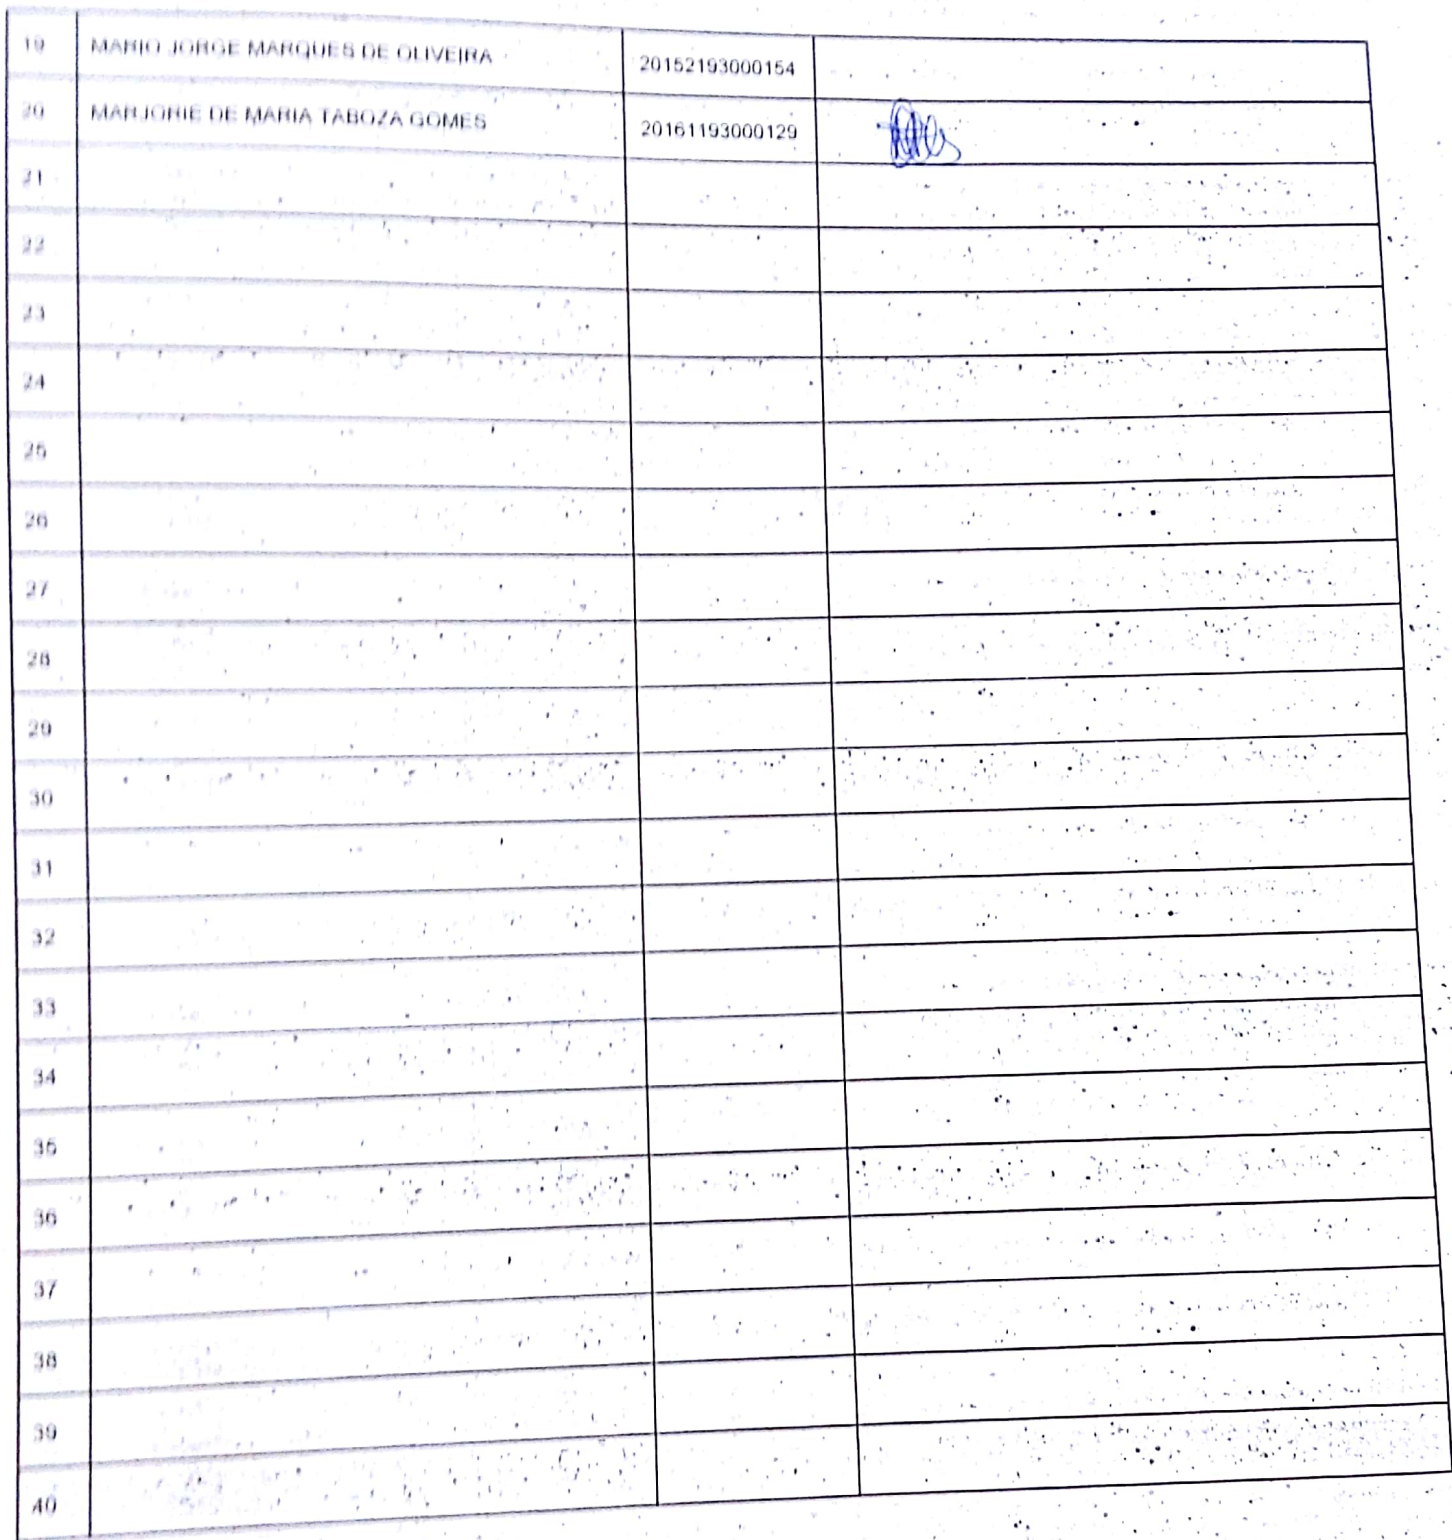 19 MARIO JORGE MARQUES DE OLIVEIRA 20152193000154
20 MARJORIE DE MARIA TABOZA GOMES 20161193000129
21
22
23
24
25
26
27
28
29
30
31
32
33
34
35
36
37
38
39
40